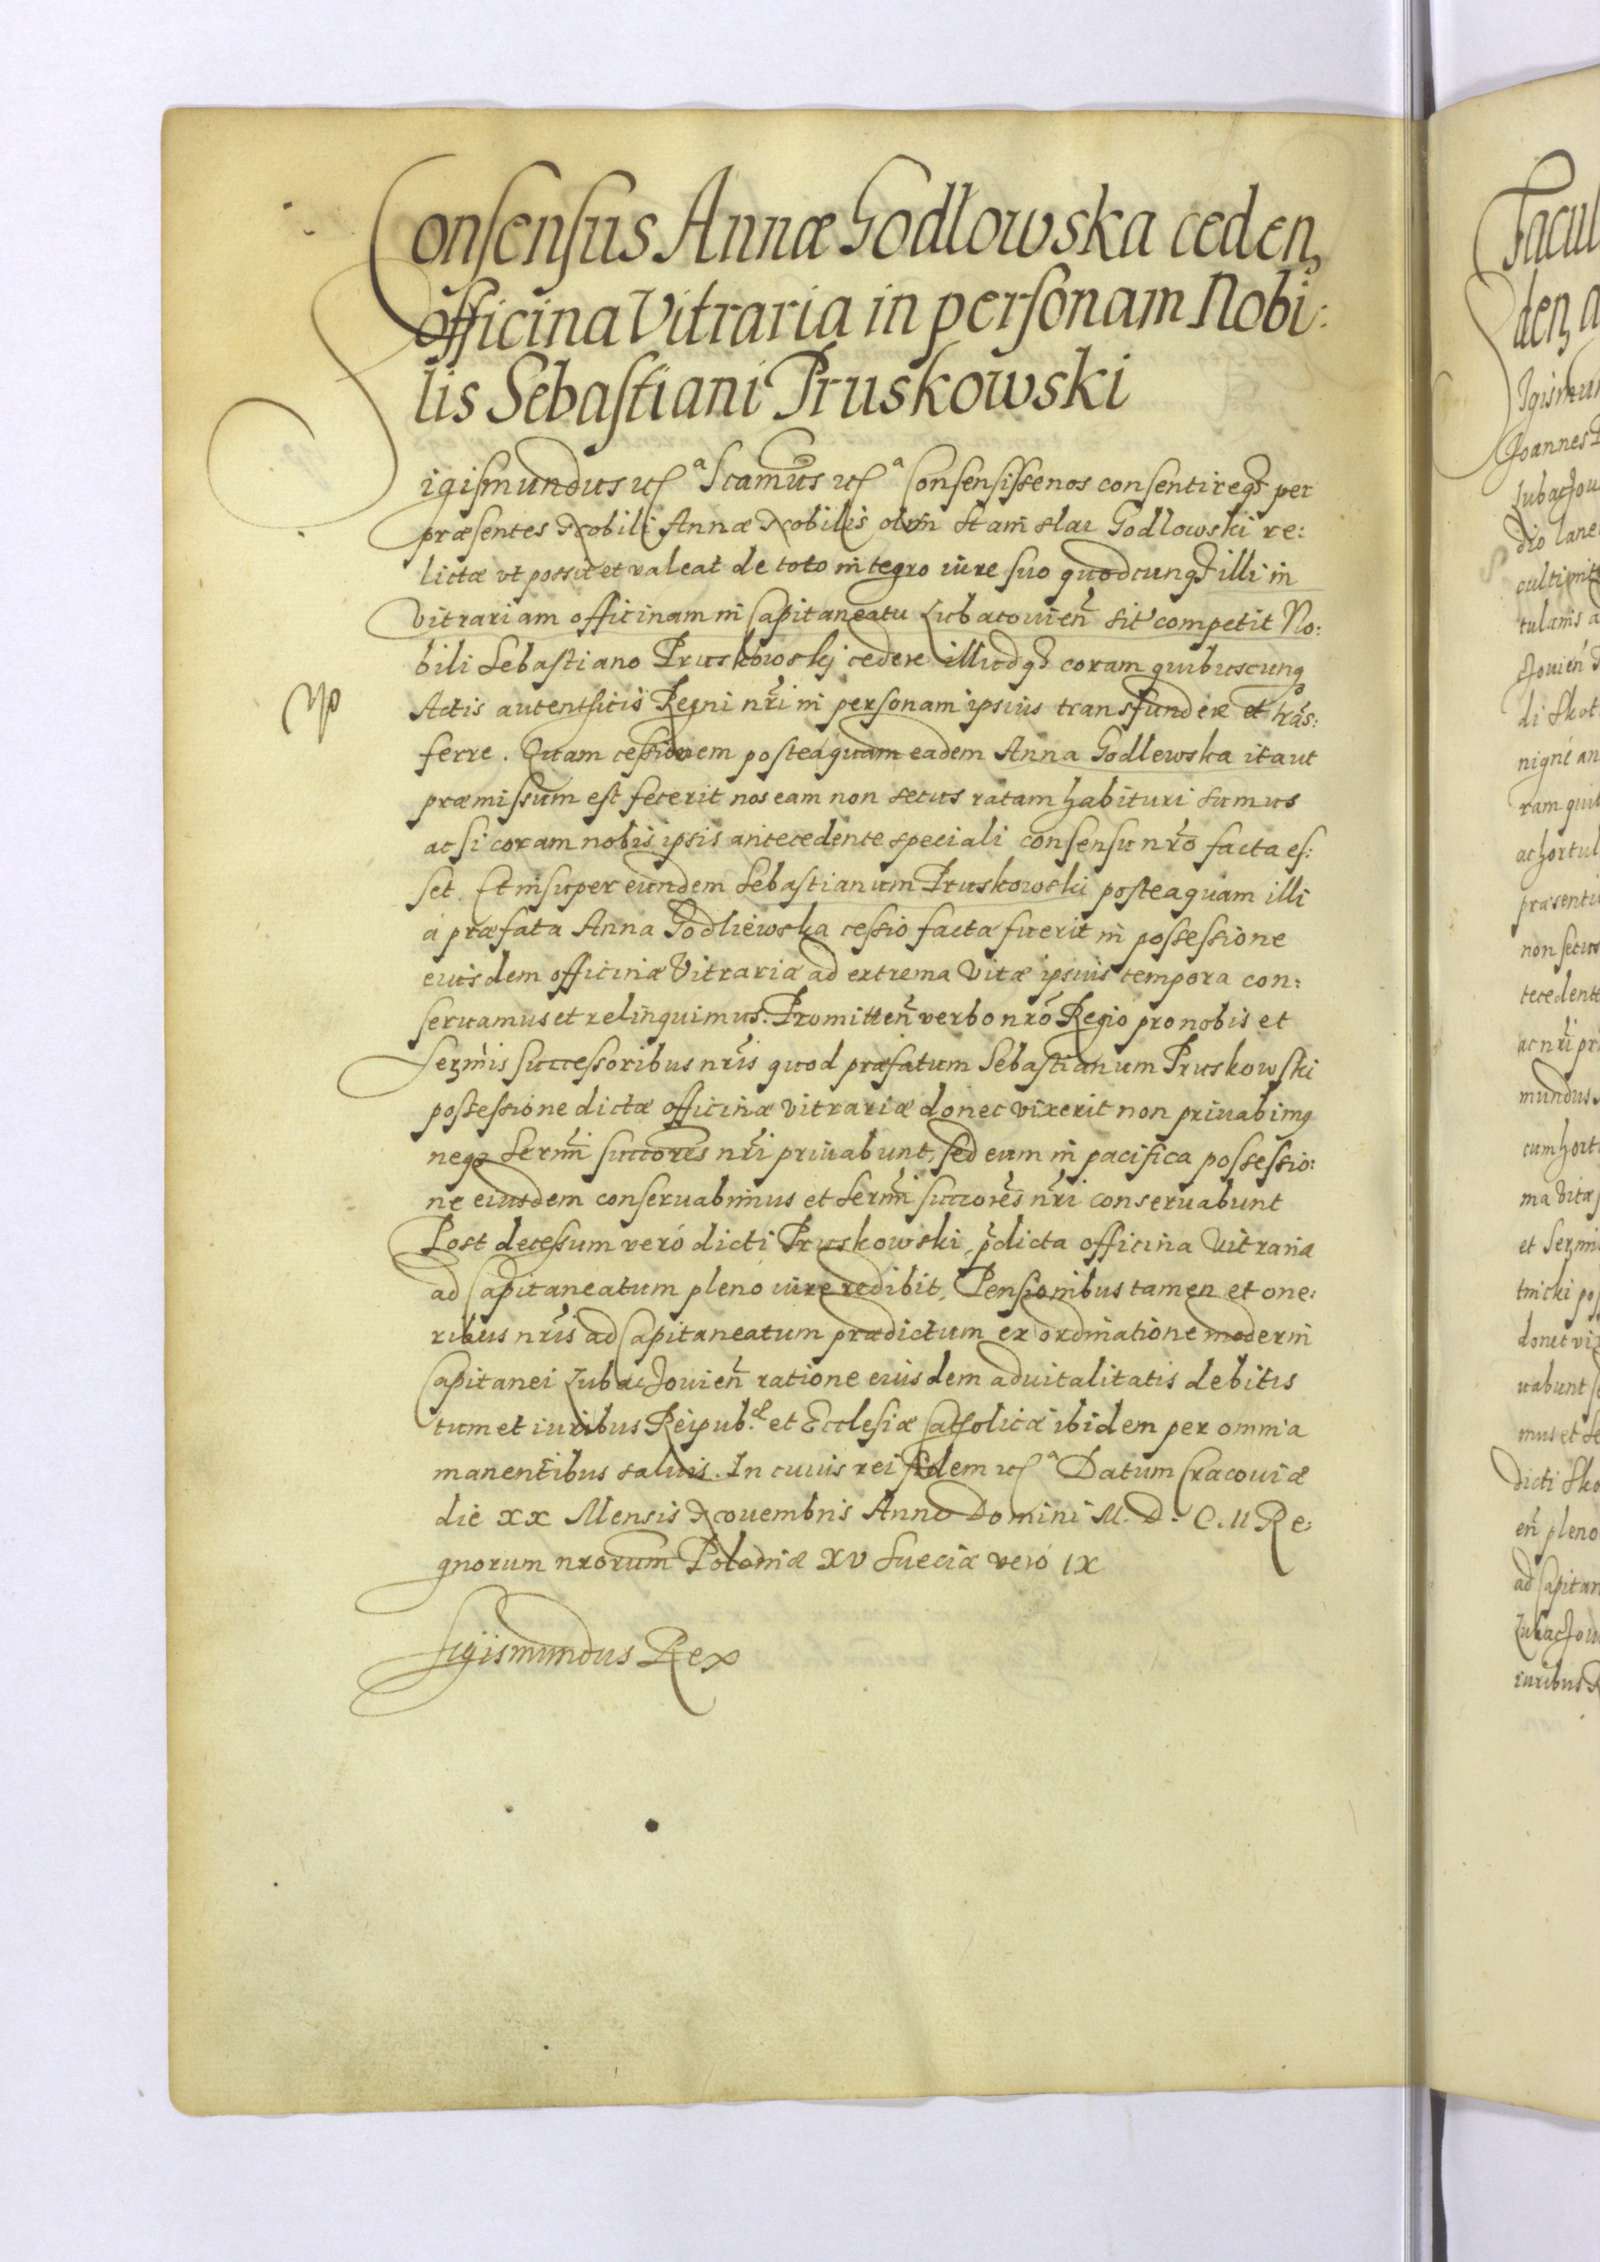 Consensus Annæ Godlowska ceden,
officina Vitraria in personam Nobi:
lis Sebastiani Pruskowski
Sigismundus etc̃ᵃ Scamus etc̃ᵃ Consensisse nos consentireqȝ per
præsentes Nobili Annæ Nobilis olim Stanislai Godlowski re:
lictæ vt possit et valeat de toto integro iure suo quodcunqȝ illi in
vitrariam officinam in Capitaneatu Lubacouien̄ sit competit No:
bili Sebastiano Pruskowskj cedere illudqȝ coram quibuscunqȝ
Actis autenthicis Regni nr̄i in personam ipsius transfundere et trās:
ferre. Quam cessionem posteaquam eadem Anna Godlewska ita ut
præmissum est fecerit nos eam non secus ratam habituri sumus
ac si coram nobis ipsis antecedente speciali consensu nr̄o facta es:
set. Et insuper eundem Sebastianum Pruskowski posteaquam illi
á præfata Anna Godliewska cessio facta fuerit in possessione
euisdem officinæ Vitrariæ ad extrema Vitæ ipsius tempora con:
seruamus et relinquimus. Promitten̄ verbo nr̄o Regio pro nobis et
Serm̄is successoribus nr̄is quod præfatum Sebastianum Pruskowski
possessione dictæ officinæ vitrariæ donec vixerit non priuabimꝯ
neqȝ Serm̄i succores nr̄i priuabunt, sed eum in pacifica possessio:
ne eiusdem conseruabimus et Serm̄i succores̄ nr̄i conseruabunt
Post decessum veró dicti Pruskowski, p̄dicta officina Vitraria
ad Capitaneatum pleno iure redibit, Pensionibus tamen et one:
ribus nr̄is ad Capitaneatum prædictum ex ordinatione moderni
Capitanei Lubacżouien̄ ratione eiusdem aduitalitatis debitis
tum et iuribus Reipub.ᶜᵉ et Ecclesiæ Catholicæ ibidem per omnia
manentibus saluis. In cuius rei fidem etc̃ᵃ Datum Cracouiæ
die XX Mensis Nouembris Anno Domini M. D. C. II Re:
gnorum nrorum Poloniæ XV Sueciæ veró IX
Sigismundus Rex